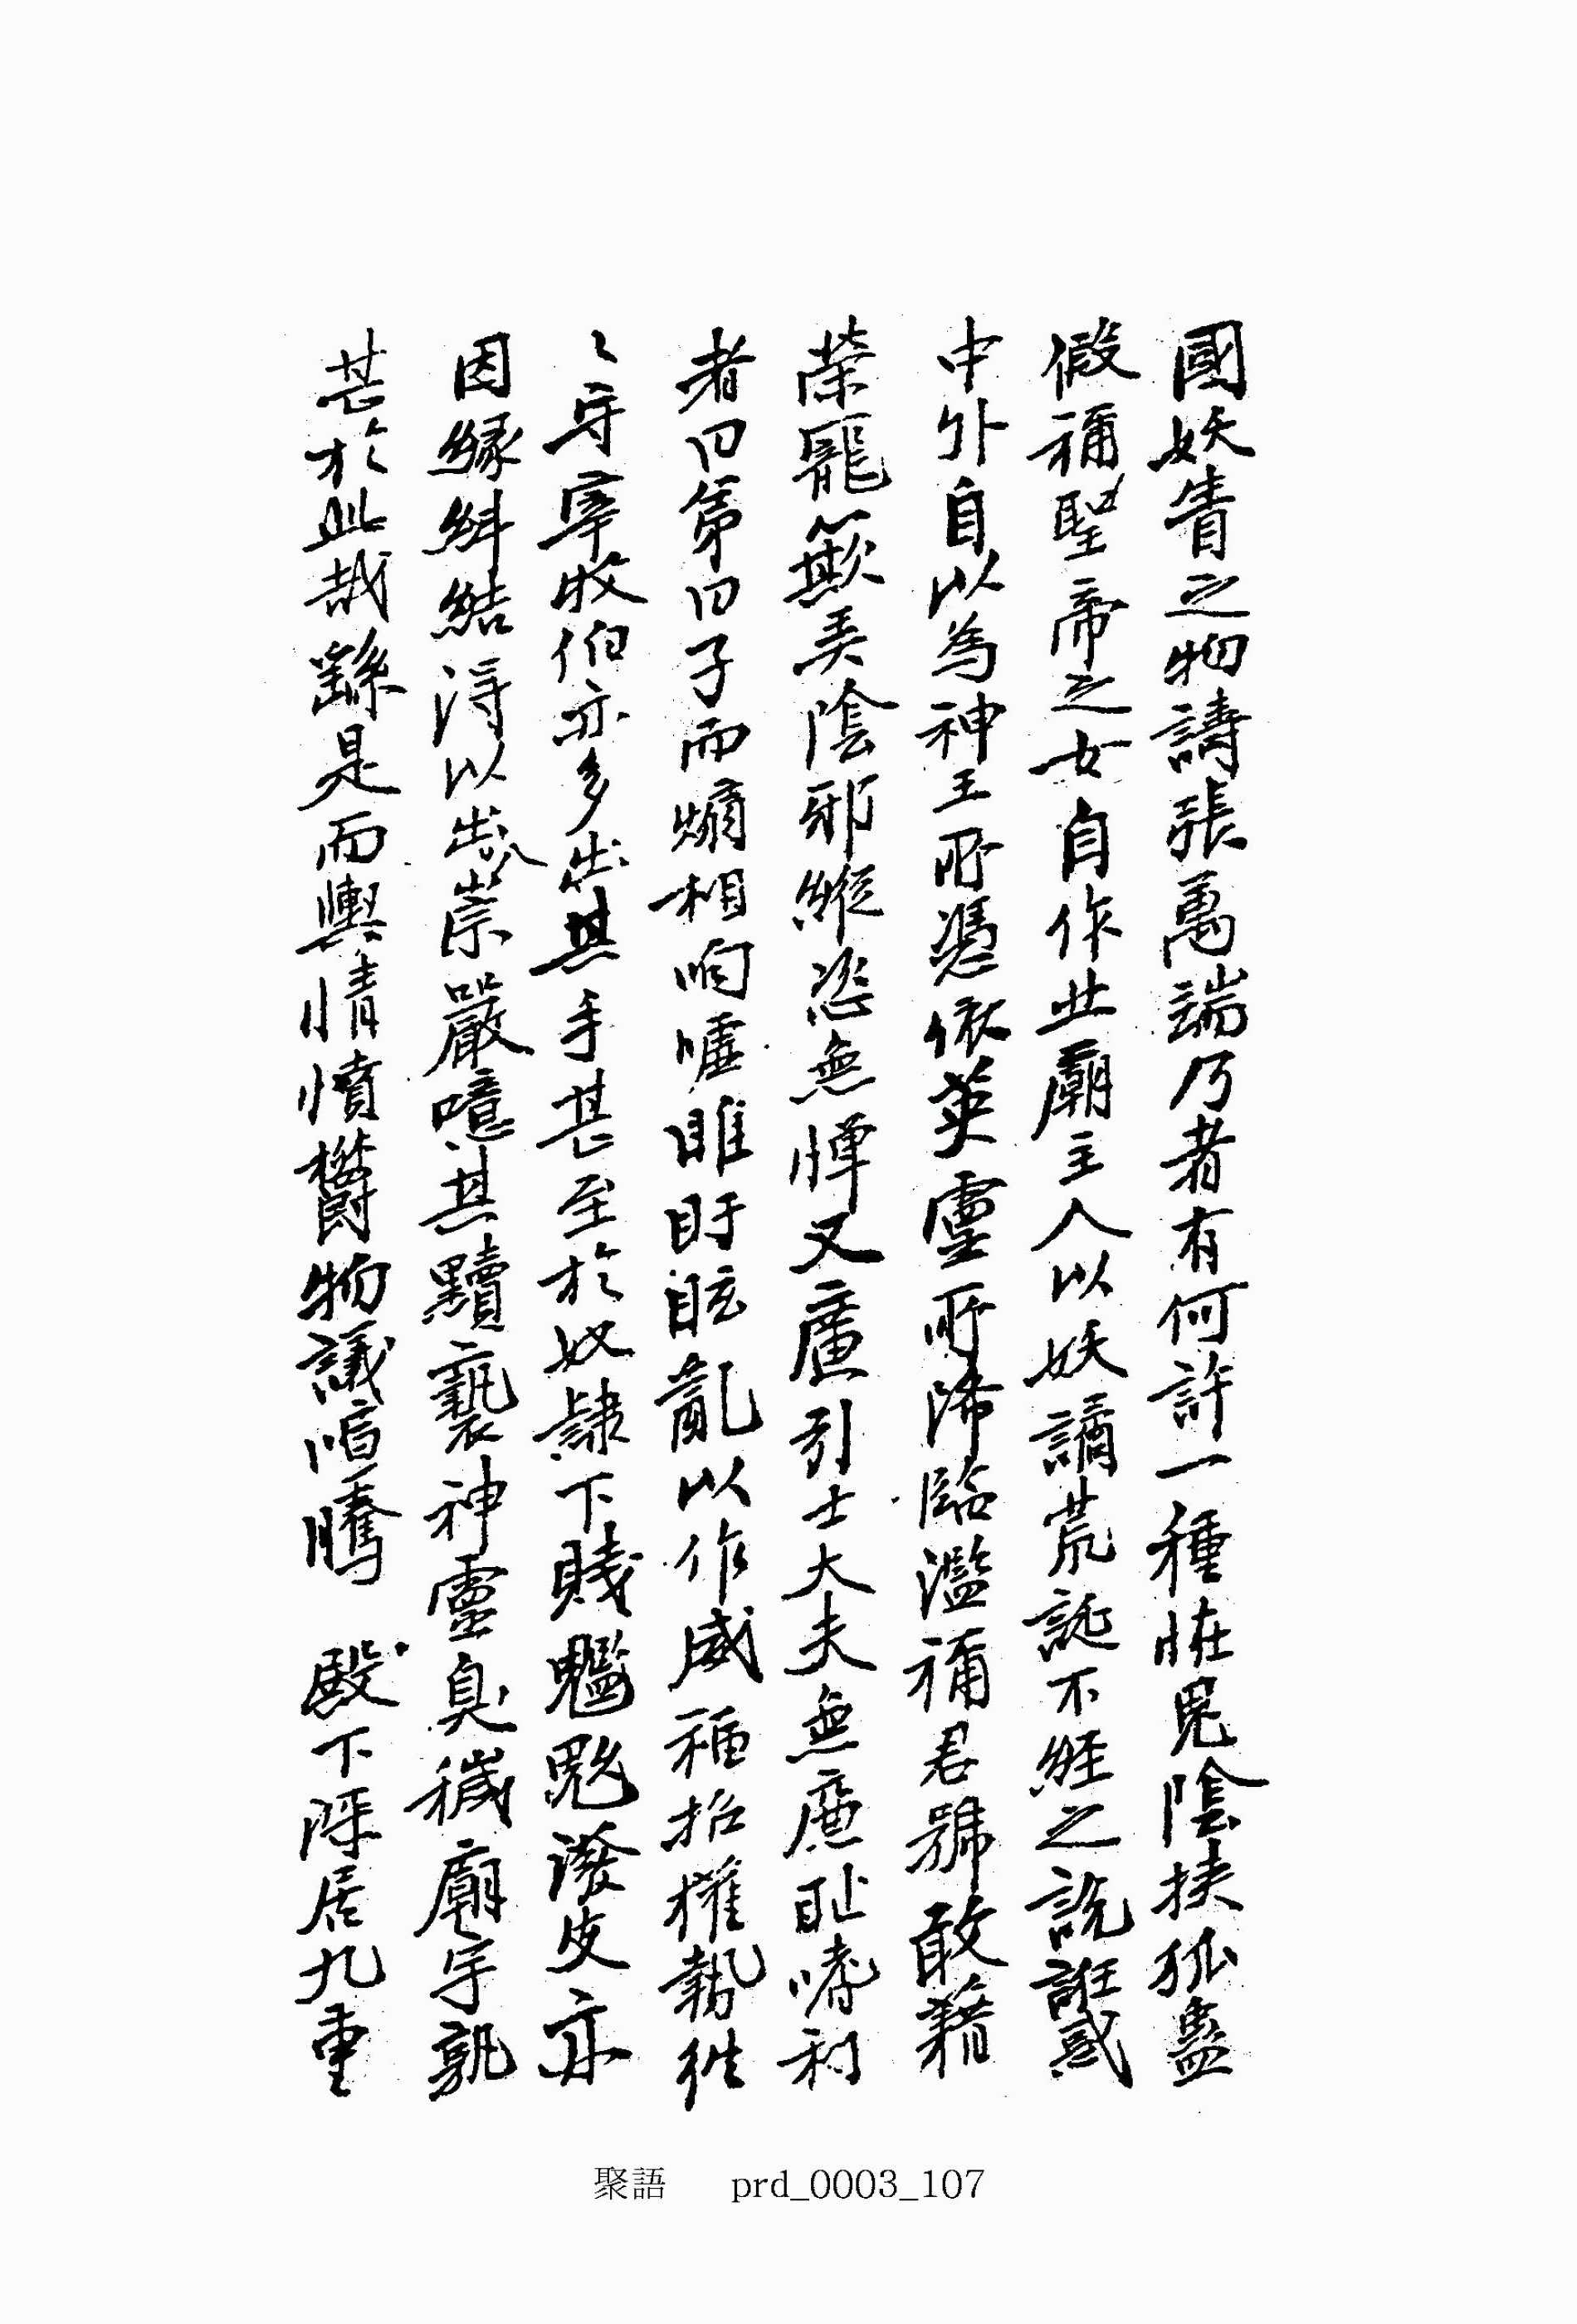 國妖眚之物譸張萬端乃者有何許一種怪鬼陰挾狐蠱
假稱聖帝之女自作北廟主人以妖譎荒誕不經之說誑惑
中外自以為神王所憑依英靈所降臨濫稱君號敢藉
榮寵欺美陰邪縱恣無憚又廣引士大夫無廉耻嗜利
者曰弟曰子而煽相呴噓睢盱眩亂以作威福招權勢往
〻守宰牧伯亦多出其手甚至於奴隷下賤魑魅潑皮亦
因緣糾結得以出崇嚴噫其黷褻神靈臭穢廟宇孰
甚於此哉繇是而輿情憤欝物議喧騰 殿下深居九重
聚語 prd_0003_107